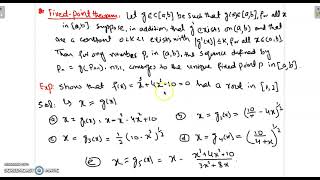 Fixed-point theorem: Let g ∈ C[a,b] be such that g(x) ∈ [a,b], for all
x in [a,b]. Suppose, in addition, that g' exists on (a,b) and that
a constant 0<k<1 exists with |g'(x)| ≤ k, for all x ∈ (a,b).
Then for any number p₀ in [a,b], the sequence defined by
pₙ = g(pₙ₋₁), n≥1, converges to the unique fixed point p in [a,b].
Exp: Show that f(x) = x³+4x²-10 = 0 has a root in [1,2]
Sol: is x = g(x)
(a) x = g₁(x) = x - x³ - 4x² + 10 (b) x = g₂(x) = (10/x - 4x)^1/2
(c) x = g₃(x) = 1/2 (10 - x³)^1/2 (d) x = g₄(x) = (10/(4+x))^1/2
(e) x = g₅(x) = x - (x³+4x²-10)/(3x²+8x)